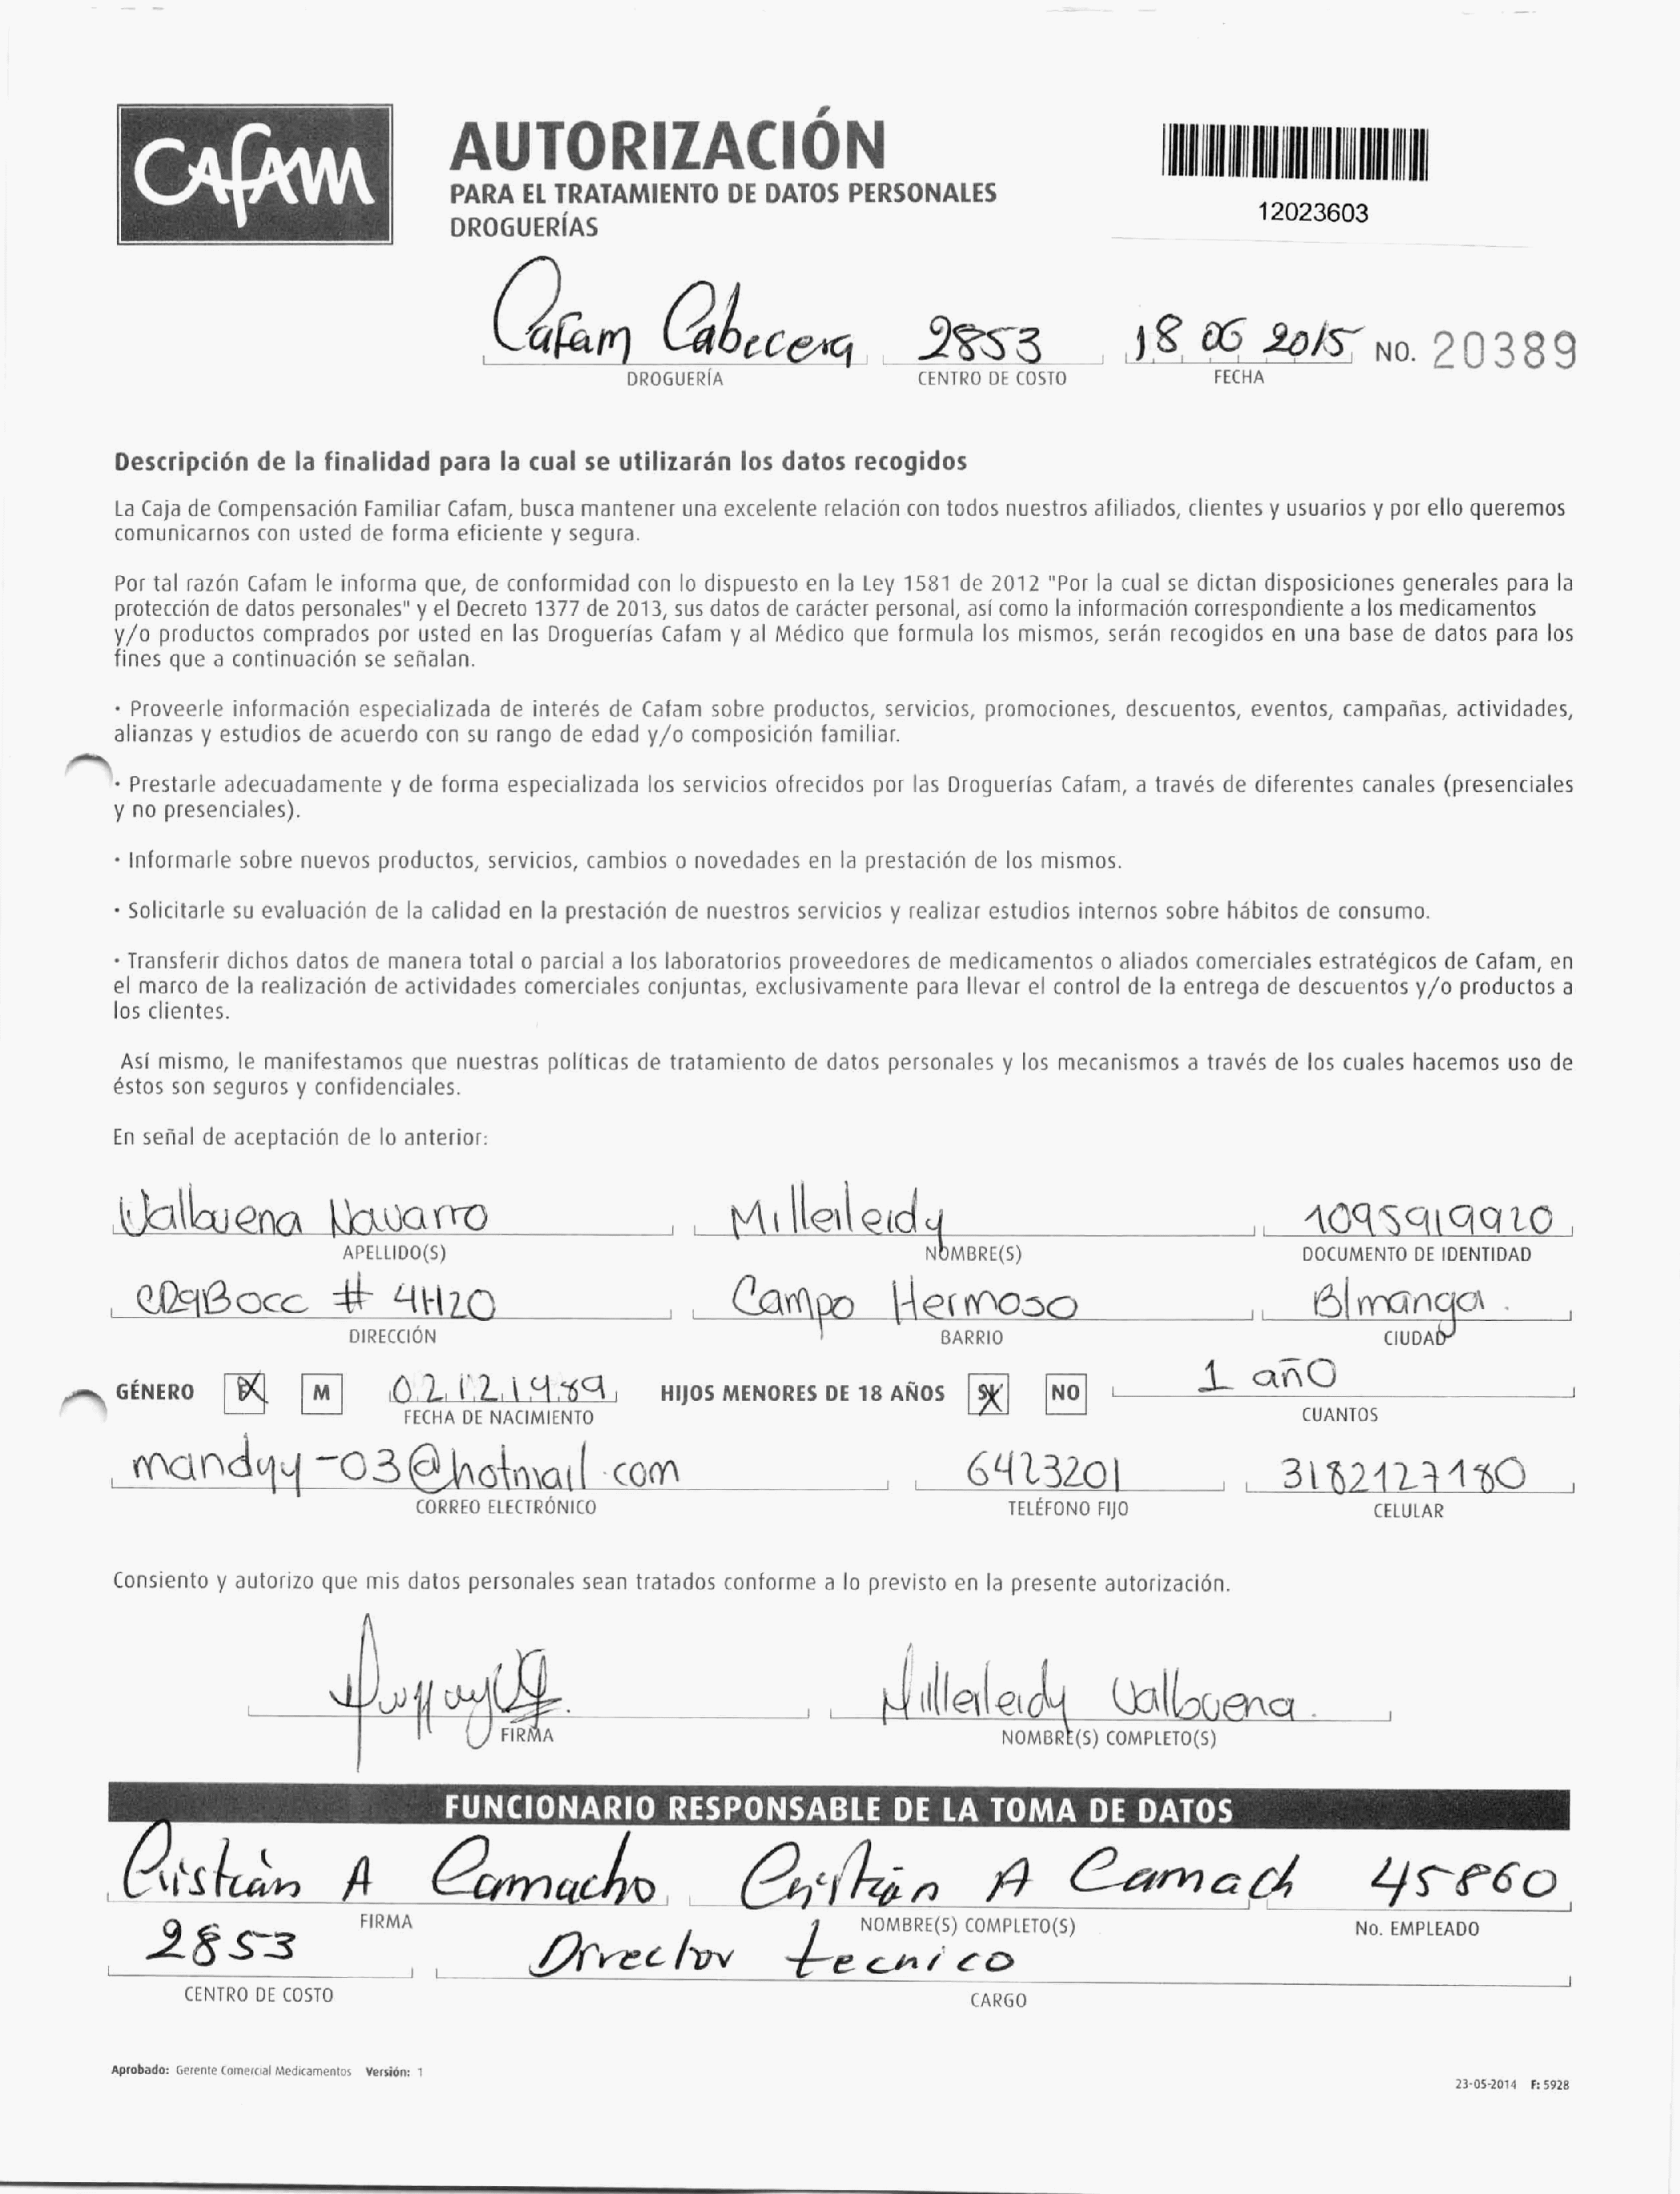 CAFAM
AUTORIZACIÓN
PARA EL TRATAMIENTO DE DATOS PERSONALES
DROGUERÍAS
12023603
Cafam Cabecera 2853 18 06 2015 NO. 20389
DROGUERÍA CENTRO DE COSTO FECHA
Descripción de la finalidad para la cual se utilizarán los datos recogidos
La Caja de Compensación Familiar Cafam, busca mantener una excelente relación con todos nuestros afiliados, clientes y usuarios y por ello queremos
comunicarnos con usted de forma eficiente y segura.
Por tal razón Cafam le informa que, de conformidad con lo dispuesto en la Ley 1581 de 2012 "Por la cual se dictan disposiciones generales para la
protección de datos personales" y el Decreto 1377 de 2013, sus datos de carácter personal, así como la información correspondiente a los medicamentos
y/o productos comprados por usted en las Droguerías Cafam y al Médico que formula los mismos, serán recogidos en una base de datos para los
fines que a continuación se señalan.
· Proveerle información especializada de interés de Cafam sobre productos, servicios, promociones, descuentos, eventos, campañas, actividades,
alianzas y estudios de acuerdo con su rango de edad y/o composición familiar.
· Prestarle adecuadamente y de forma especializada los servicios ofrecidos por las Droguerías Cafam, a través de diferentes canales (presenciales
y no presenciales).
· Informarle sobre nuevos productos, servicios, cambios o novedades en la prestación de los mismos.
· Solicitarle su evaluación de la calidad en la prestación de nuestros servicios y realizar estudios internos sobre hábitos de consumo.
· Transferir dichos datos de manera total o parcial a los laboratorios proveedores de medicamentos o aliados comerciales estratégicos de Cafam, en
el marco de la realización de actividades comerciales conjuntas, exclusivamente para llevar el control de la entrega de descuentos y/o productos a
los clientes.
Así mismo, le manifestamos que nuestras políticas de tratamiento de datos personales y los mecanismos a través de los cuales hacemos uso de
éstos son seguros y confidenciales.
En señal de aceptación de lo anterior:
Valbuena Navarro Milleileidy 1095919920
APELLIDO(S) NOMBRE(S) DOCUMENTO DE IDENTIDAD
# Campo Hermoso B/manga.
DIRECCIÓN BARRIO CIUDAD
GÉNERO M 02 12 1989 HIJOS MENORES DE 18 AÑOS SI NO 1 año
FECHA DE NACIMIENTO CUANTOS
mandyy-03@hotmail.com 6423201 3182127180
CORREO ELECTRÓNICO TELÉFONO FIJO CELULAR
Consiento y autorizo que mis datos personales sean tratados conforme a lo previsto en la presente autorización.
Milleileidy Valbuena.
FIRMA NOMBRE(S) COMPLETO(S)
FUNCIONARIO RESPONSABLE DE LA TOMA DE DATOS
Cristian A Camacho Cristian A Camach 45860
FIRMA NOMBRE(S) COMPLETO(S) No. EMPLEADO
2853 Director tecnico
CENTRO DE COSTO CARGO
Aprobado: Gerente Comercial Medicamentos Versión: 1
23-05-2014 F: 5928